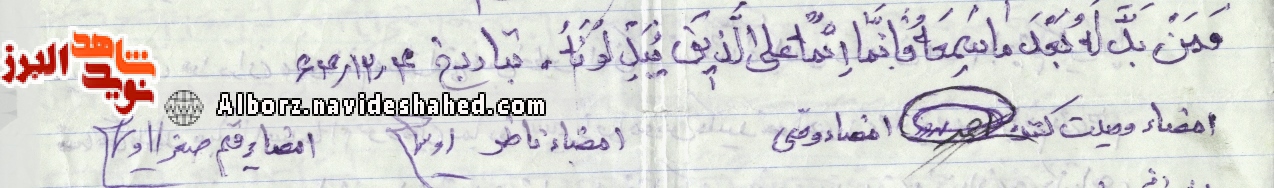 فَمَنْ بَدَّلَهُ بَعْدَ مَا سَمِعَهُ فَإِنَّمَا إِثْمُهُ عَلَى الَّذِينَ يُبَدِّلُونَهُ . بتاریخ
شاهد
نوید
البرز
Alborz.navideshahed.com
امضاء وصیت کننده امضاء وصی امضاء ناظر امضاء قیم صغار